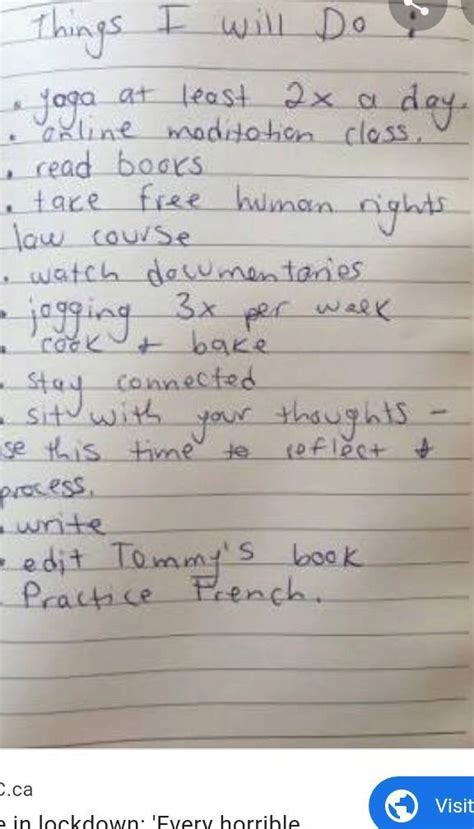 Things I will Do :
• yoga at least 2x a day.
• online meditation class.
• read books
• take free human rights
law course
• watch documentaries
• jogging 3x per week
• cook + bake
• stay connected
• sit with your thoughts -
se this time to reflect +
process.
• write
• edit Tommy's book
- Practice French.
C.ca
e in lockdown: 'Every horrible
Visit